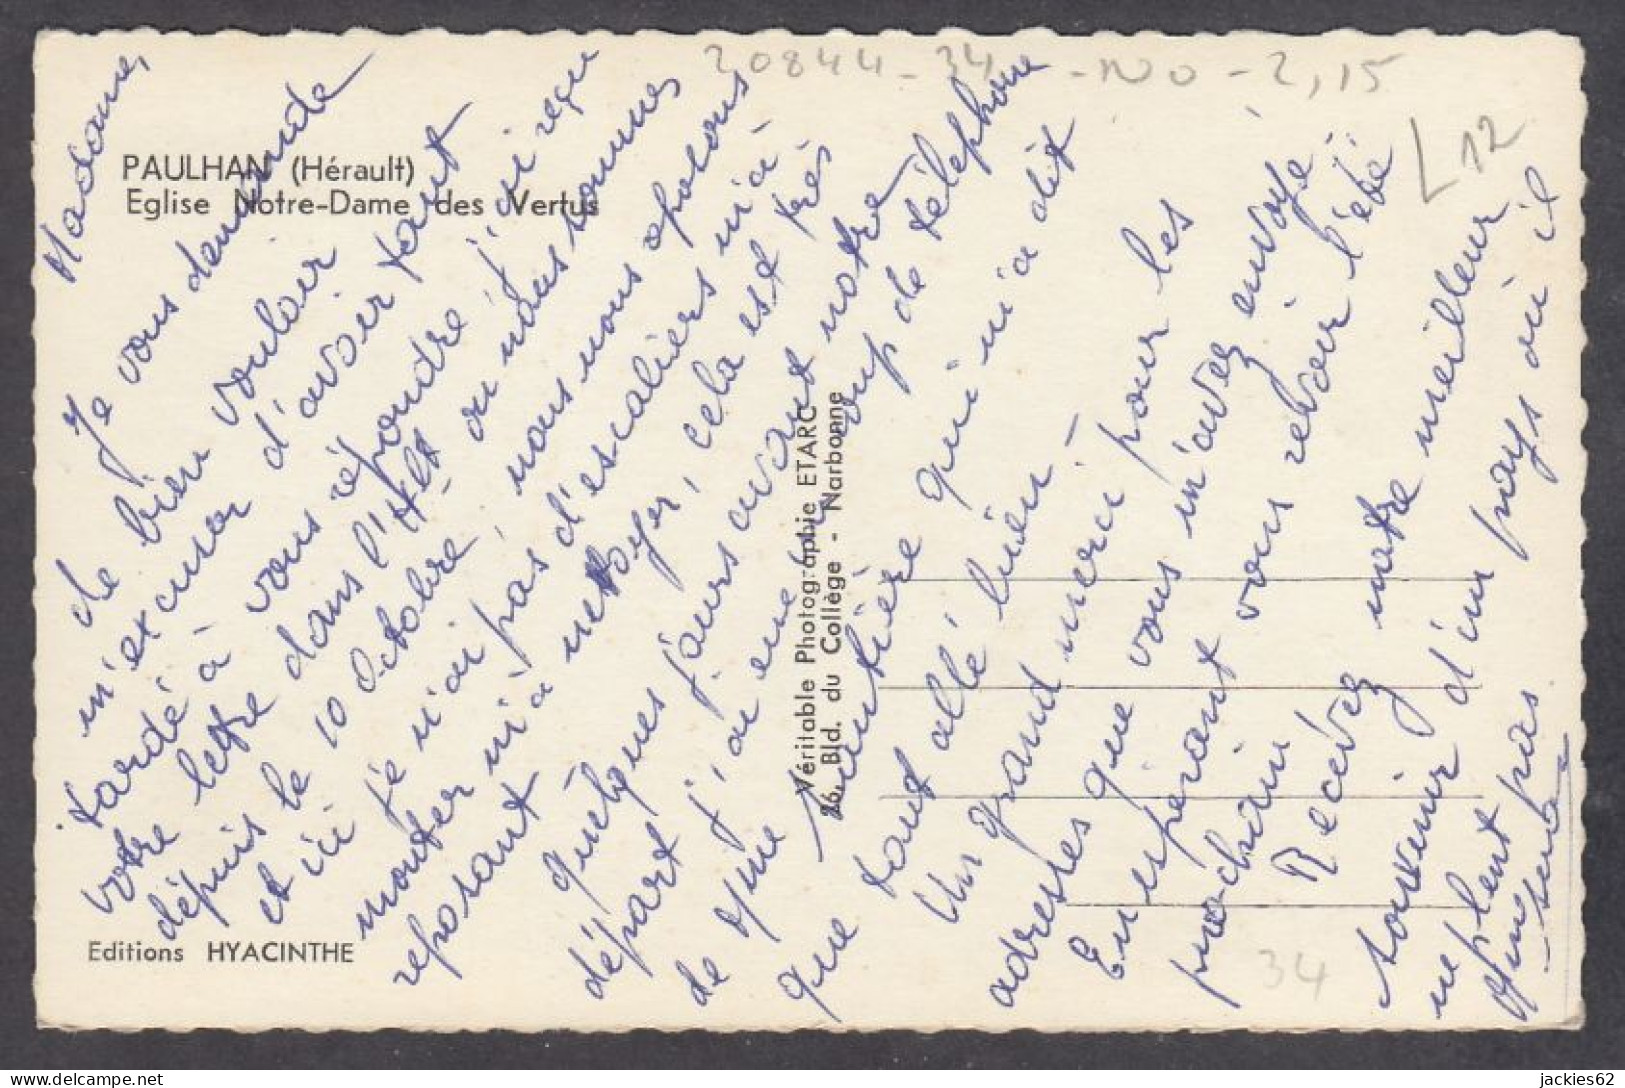 30844-34 - NO - 2,15
L 12
PAULHAN (Hérault)
Eglise Notre-Dame des Vertus
Madame,
Je vous demande
de bien vouloir
m'excuser d'avoir tant
tardé à vous répondre j'ai reçu
votre lettre dans l'Hlt ou nous sommes
depuis le 10 Octobre, nous nous reposons
et ici je n'ai pas d'escaliers ni à
monter ni à nettoyer, cela est très
reposant
Quelques jours avant notre
départ j'ai eue un coup de téléphone
de Mme qui m'a dit
que tout allé bien.-
Un grand merci pour les
adresses que vous m'avez envoyé-
En espérant vous revoir l'été
prochain
Recevez notre meilleur
souvenir d'un pays où il
ne pleut pas
Véritable Photographie ETARC
26, Bld. du Collège - Narbonne
Editions HYACINTHE
34
jackies62